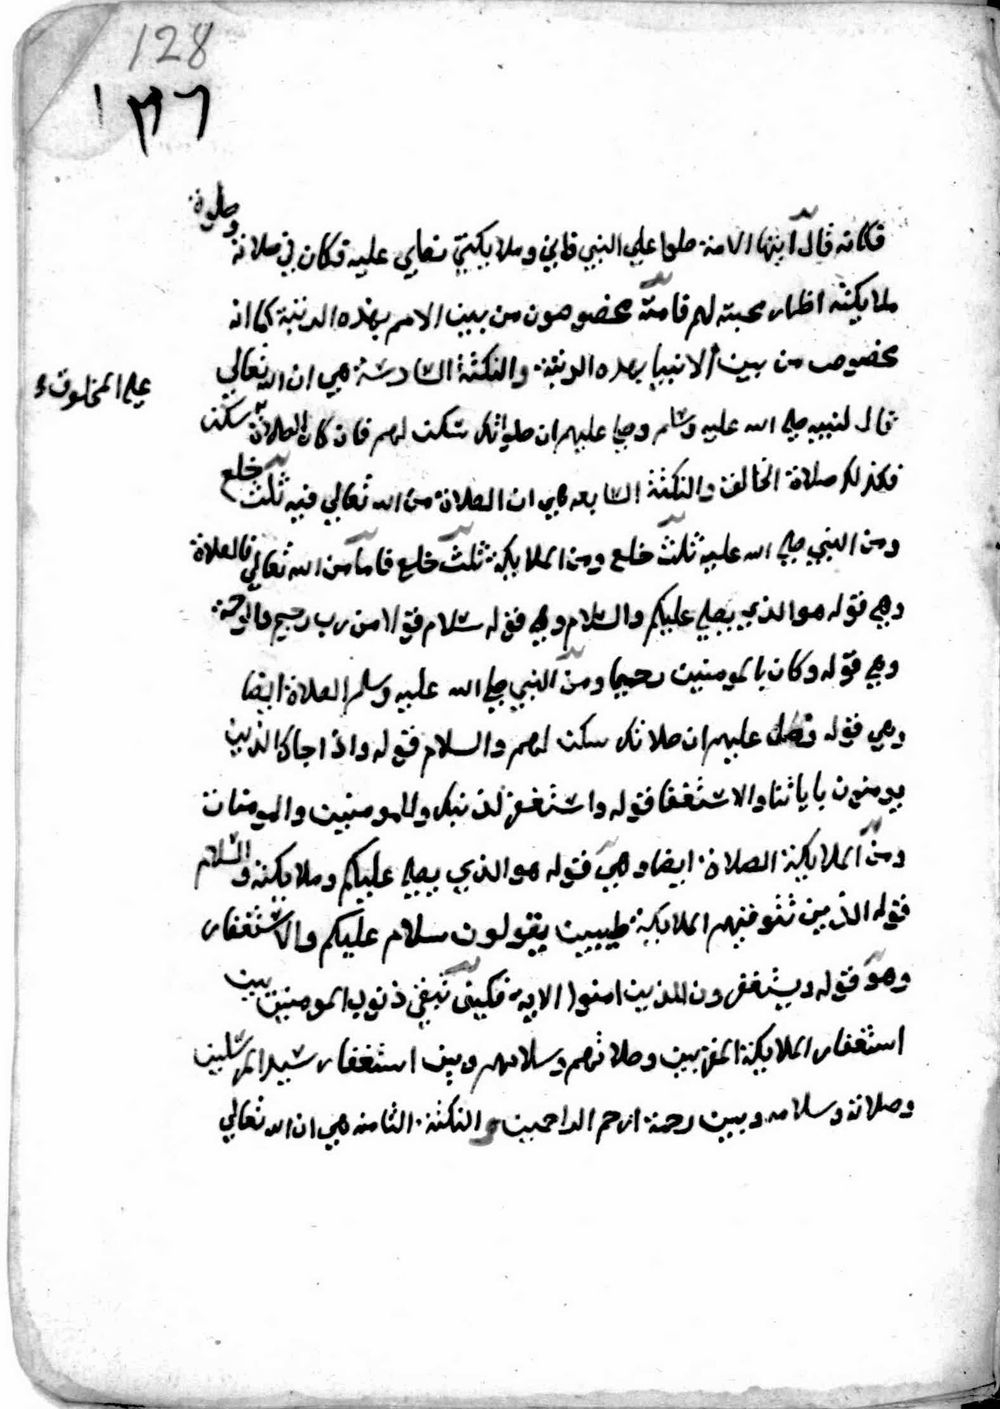 128
١٣٦
فكانه قال ايتها الامة صلوا علي النبي فاني وملايكتي نصلي عليه فكان في صلاته وصلوة
ملايكته اظهار محبته لهم فامته مخصوصون من بين الامم بهذه الرتبة كما انه
مخصوص من بين الانبيا بهذه الرتبة والنكتة السادسة هي ان الله تعالي
قال لنبيه صلي الله عليه وسلم وصل عليهم ان صلواتك سكن لهم فان كان الصلاة سكن
على المخلوق
فكذلك صلاة الخالق والنكتة السابعة هي ان الصلاة من الله تعالي فيه ثلث خلع
ومن النبي صلي الله عليه ثلث خلع ومن الملايكة ثلث خلع فاما من الله تعالي فالصلاة
وهي قوله هو الذي يصلي عليكم والسلام وهي قوله سلام قولا من رب رحيم والرحمة
وهي قوله وكان بالمومنين رحيما ومن النبي صلي الله عليه وسلم الصلاة ايضا
وهي قوله وصل عليهم ان صلاتك سكن لهم والسلام قوله واذا جاك الذين
يومنون باياتنا والاستغفا قوله واستغفر لذنبك وللمومنين والمومنات
ومن الملايكة الصلاة ايضا وهي قوله هو الذي يصلي عليكم وملايكته والسلام
قوله الذين تتوفيهم الملايكة طيبين يقولون سلام عليكم والاستغفار
وهو قوله ويستغفرون للذين امنوا الاية فكيف تبقي ذنوب المومنين بين
استغفار الملايكة المقربين وصلاتهم وسلامهم وبين استغفار سيد المرسلين
وصلاته وسلامه وبين رحمة ارحم الراحمين والنكتة الثامنة هي ان الله تعالي